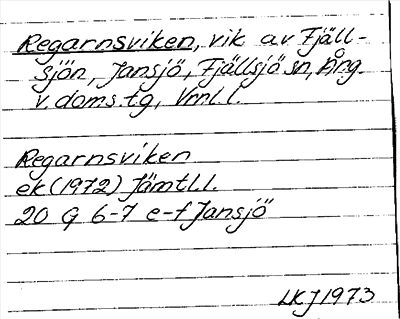 Regarnsviken, vik av Fjäll-
sjön, Jansjö, Fjällsjö sn, Ång.
v. doms. tg, Vrnl. l.
Regarnsviken
ek (1972) Jämtl.l.
20 G 6-7 e-f Jansjö
LKJ 1973